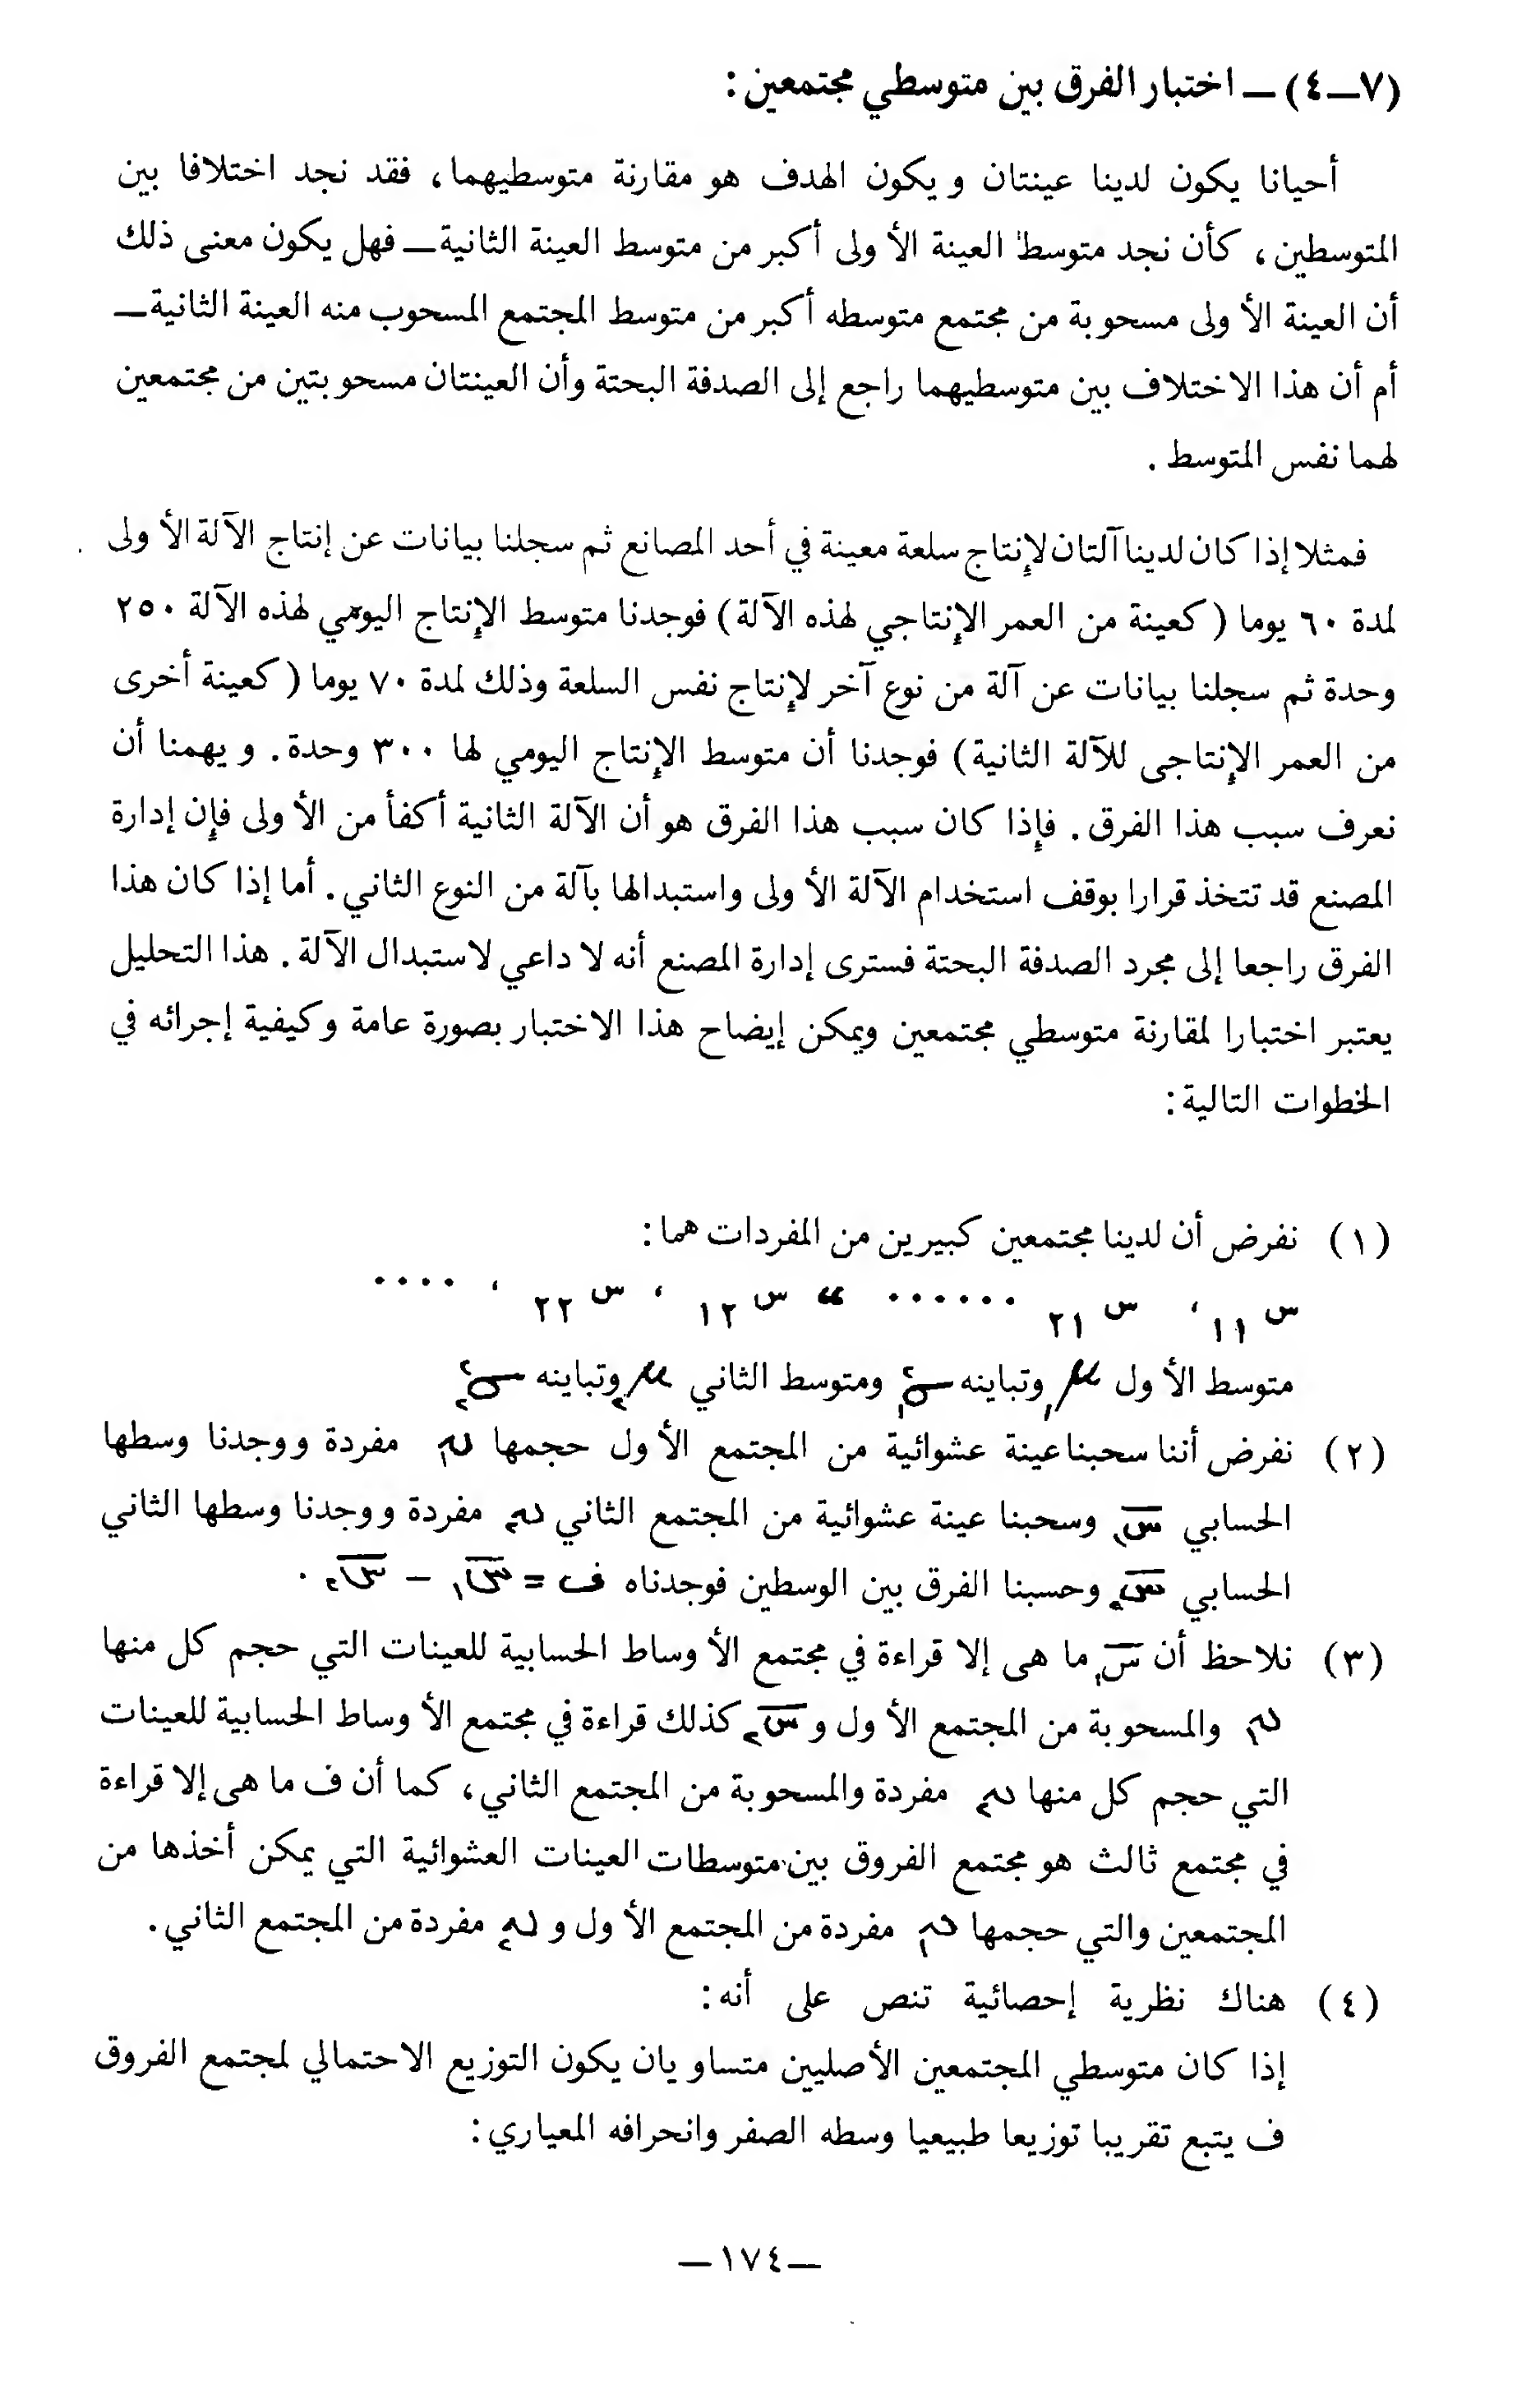 (٧ــ٤) ــ اختبار الفرق بين متوسطي مجتمعين:
أحيانا يكون لدينا عينتان ويكون الهدف هو مقارنة متوسطيهما، فقد نجد اختلافا بين
المتوسطين، كأن نجد متوسط العينة الأولى أكبر من متوسط العينة الثانيةــ فهل يكون معنى ذلك
أن العينة الأولى مسحوبة من مجتمع متوسطه أكبر من متوسط المجتمع المسحوب منه العينة الثانيةــ
أم أن هذا الاختلاف بين متوسطيهما راجع إلى الصدفة البحتة وأن العينتان مسحوبتين من مجتمعين
لهما نفس المتوسط.
فمثلا إذا كان لدينا آلتان لإنتاج سلعة معينة في أحد المصانع ثم سجلنا بيانات عن إنتاج الآلة الأولى
لمدة ٦٠ يوما (كعينة من العمر الإنتاجي لهذه الآلة) فوجدنا متوسط الإنتاج اليومي لهذه الآلة ٢٥٠
وحدة ثم سجلنا بيانات عن آلة من نوع آخر لإنتاج نفس السلعة وذلك لمدة ٧٠ يوما (كعينة أخرى
من العمر الإنتاجى للآلة الثانية) فوجدنا أن متوسط الإنتاج اليومي لها ٣٠٠ وحدة. ويهمنا أن
نعرف سبب هذا الفرق. فإذا كان سبب هذا الفرق هو أن الآلة الثانية أكفأ من الأولى فإن إدارة
المصنع قد تتخذ قرارا بوقف استخدام الآلة الأولى واستبدالها بآلة من النوع الثاني. أما إذا كان هذا
الفرق راجعا إلى مجرد الصدفة البحتة فسترى إدارة المصنع أنه لا داعي لاستبدال الآلة. هذا التحليل
يعتبر اختبارا لمقارنة متوسطي مجتمعين ويمكن إيضاح هذا الاختبار بصورة عامة وكيفية إجرائه في
الخطوات التالية:
(١) نفرض أن لدينا مجتمعين كبيرين من المفردات هما:
س١١، س٢١ ...... ،، س١٢ ، س٢٢ ، ....
متوسط الأول μ₁ وتباينه σ₁² ومتوسط الثاني μ₂ وتباينه σ₂²
(٢) نفرض أننا سحبنا عينة عشوائية من المجتمع الأول حجمها ن₁ مفردة ووجدنا وسطها
الحسابي س̄₁ وسحبنا عينة عشوائية من المجتمع الثاني ن₂ مفردة ووجدنا وسطها الثاني
الحسابي س̄₂ وحسبنا الفرق بين الوسطين فوجدناه ف = س̄₁ − س̄₂.
(٣) نلاحظ أن س̄₁ ما هى إلا قراءة في مجتمع الأوساط الحسابية للعينات التي حجم كل منها
ن₁ والمسحوبة من المجتمع الأول و س̄₂ كذلك قراءة في مجتمع الأوساط الحسابية للعينات
التي حجم كل منها ن₂ مفردة والمسحوبة من المجتمع الثاني، كما أن ف ما هى إلا قراءة
في مجتمع ثالث هو مجتمع الفروق بين متوسطات العينات العشوائية التي يمكن أخذها من
المجتمعين والتي حجمها ن₁ مفردة من المجتمع الأول و ن₂ مفردة من المجتمع الثاني.
(٤) هناك نظرية إحصائية تنص على أنه:
إذا كان متوسطي المجتمعين الأصليين متساويان يكون التوزيع الاحتمالي لمجتمع الفروق
ف يتبع تقريبا توزيعا طبيعيا وسطه الصفر وانحرافه المعياري:
ــ١٧٤ــ